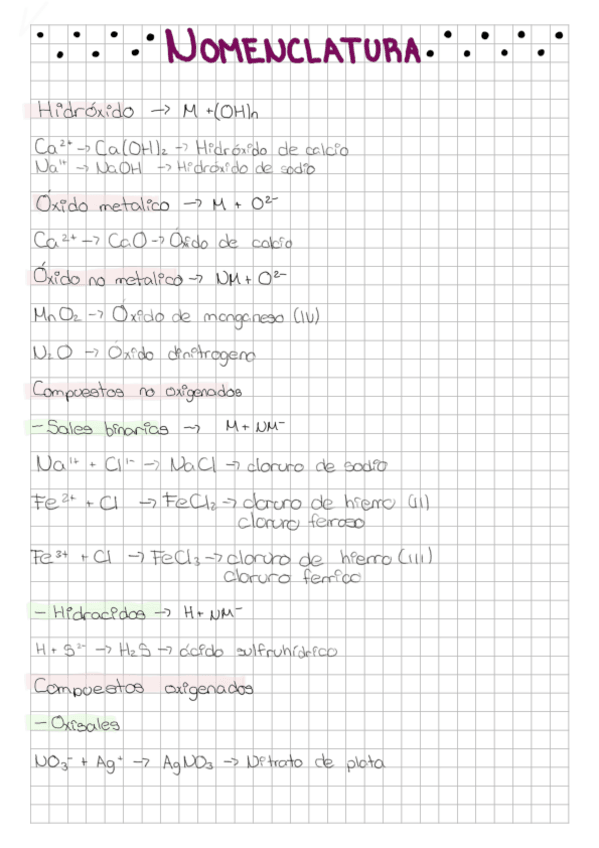 NOMENCLATURA
Hidróxido → M + (OH)n
Ca²⁺ → Ca(OH)₂ → Hidróxido de calcio
Na¹⁺ → NaOH → Hidróxido de sodio
Óxido metalico → M + O²⁻
Ca²⁺ → CaO → Óxido de calcio
Óxido no metalico → NM + O²⁻
MnO₂ → Óxido de manganeso (IV)
N₂O → Óxido dinitrogeno
Compuestos no oxigenados
- Sales binarias → M + NM⁻
Na¹⁺ + Cl¹⁻ → NaCl → cloruro de sodio
Fe²⁺ + Cl → FeCl₂ → cloruro de hierro (II)
cloruro ferroso
Fe³⁺ + Cl → FeCl₃ → cloruro de hierro (III)
cloruro ferrico
- Hidracidos → H + NM⁻
H + S²⁻ → H₂S → ácido sulfruhídrico
Compuestos oxigenados
- Oxisales
NO₃⁻ + Ag⁺ → AgNO₃ → Nitrato de plata